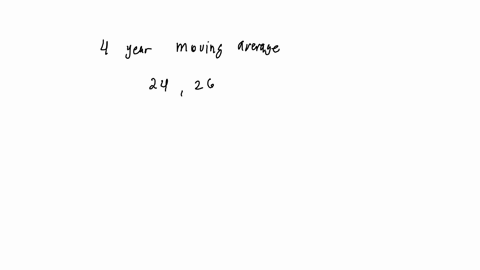 4 year moving average
24 , 26